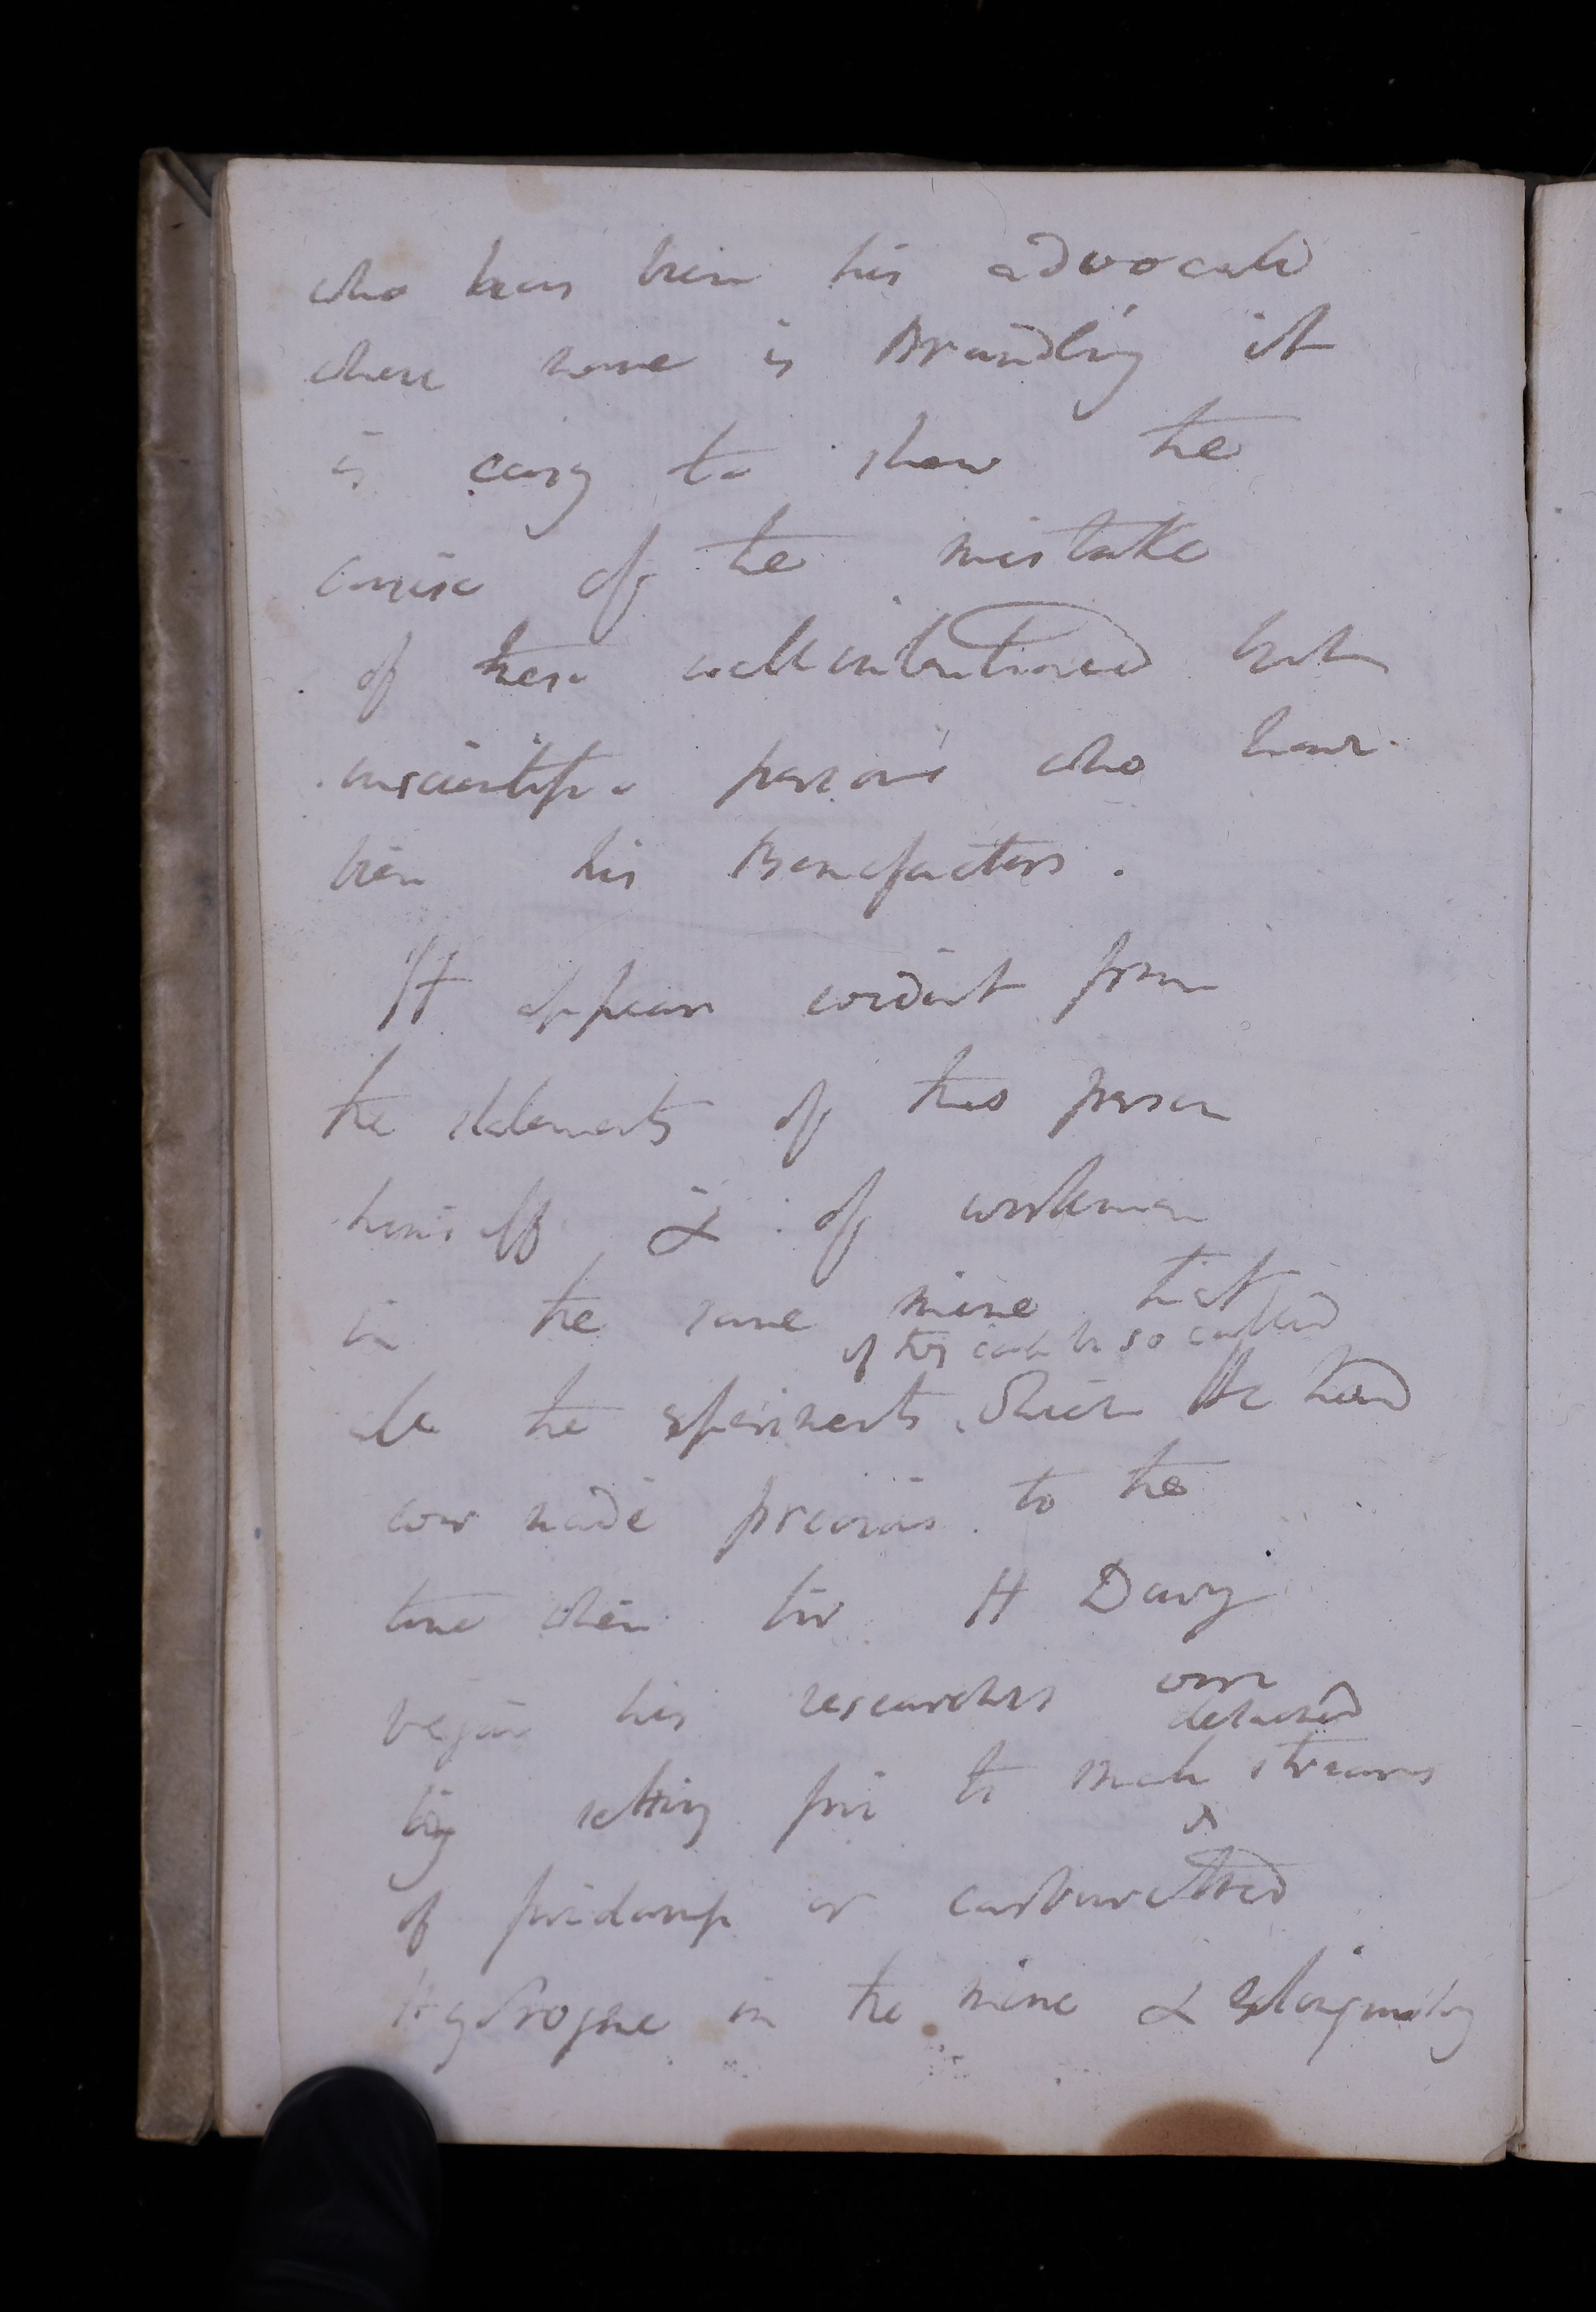 who has been his advocate
whose name is Brandling it
is easy to shew the
cause of the mistake
of these wellintentioned but
unscientific persons who have
been his Benefactors.
It appears evident from
the statements of this person
himself & of workmen
in the same mine that
if they can be so called
all the experiments which He had
ever made previous to the
time when Sir H Davy
began his researches were
detached
by setting fire to streams
of firedamp or carburetted
Hydrogene in the mine & extinguishing